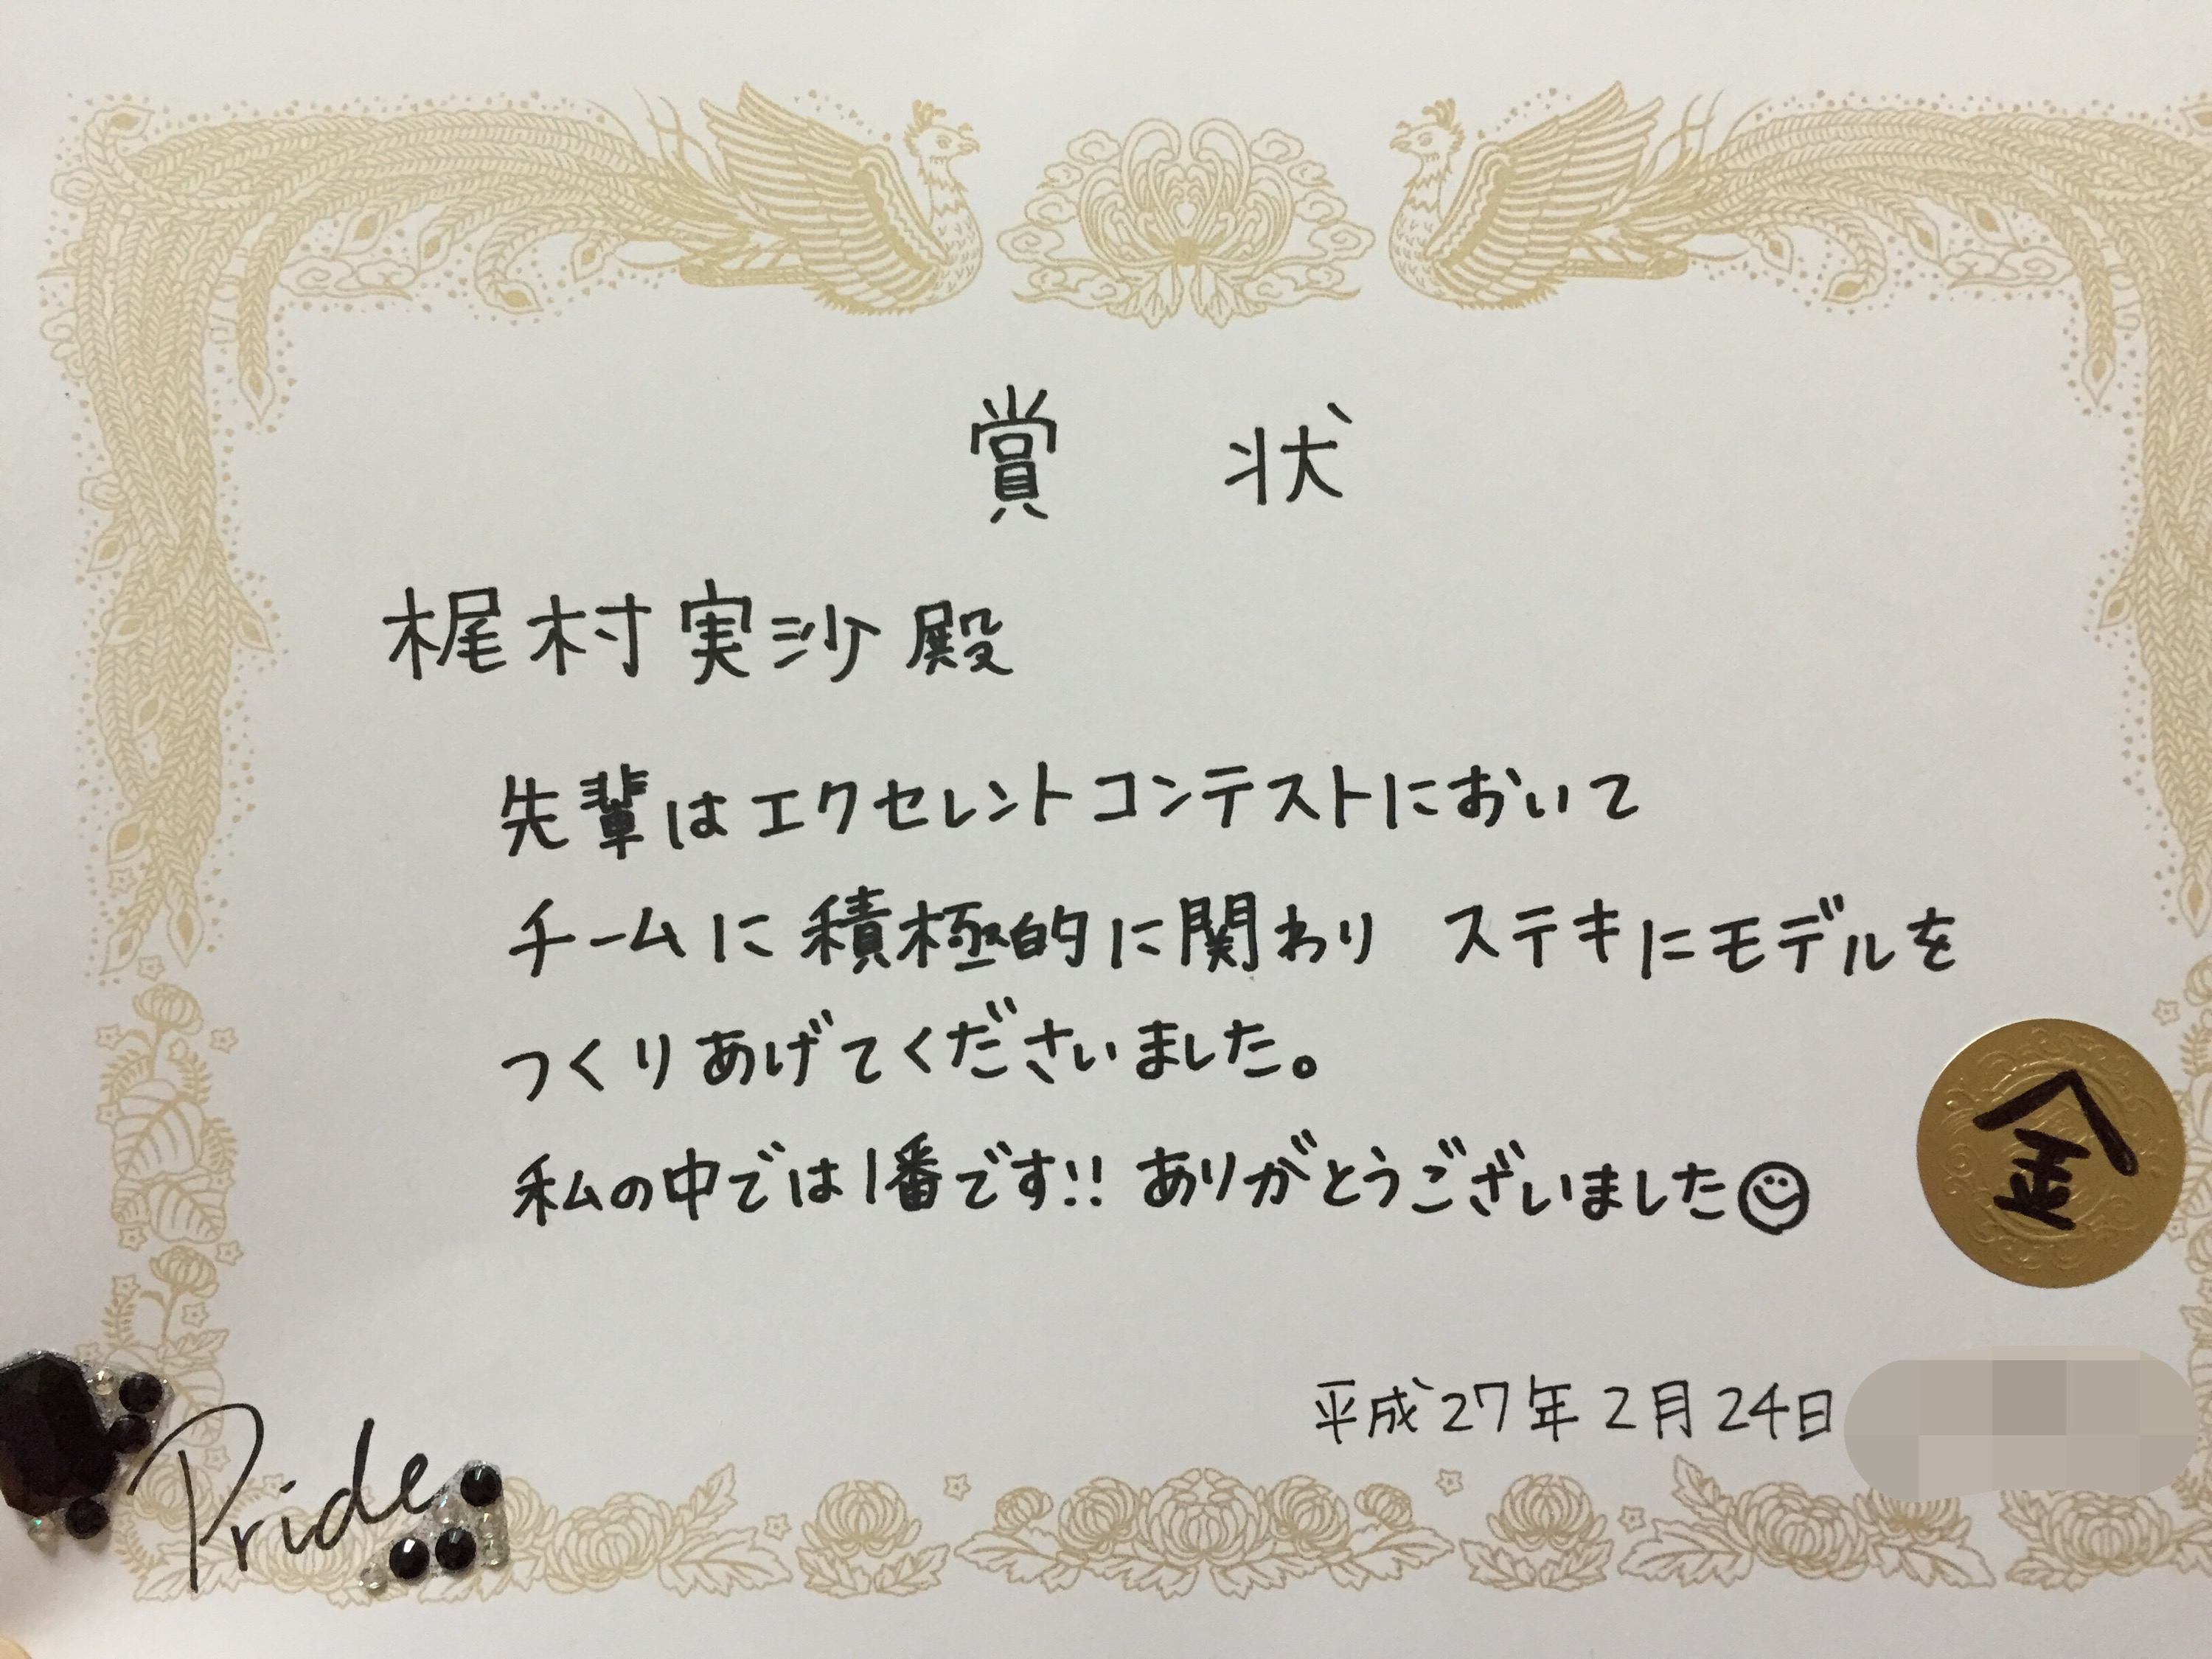 賞 状
梶村実沙殿
先輩はエクセレントコンテストにおいて
チームに積極的に関わり ステキにモデルを
つくりあげてくださいました。
私の中では1番です!! ありがとうございました☺
金
平成27年2月24日
Pride